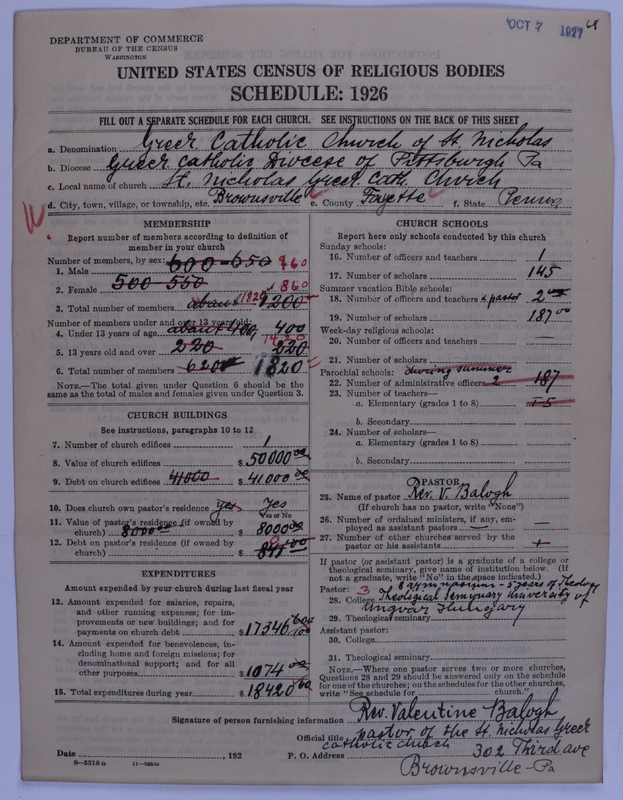 OCT 7 1927
68
DEPARTMENT OF COMMERCE
BUREAU OF THE CENSUS
WASHINGTON
UNITED STATES CENSUS OF RELIGIOUS BODIES
SCHEDULE: 1926
FILL OUT A SEPARATE SCHEDULE FOR EACH CHURCH. SEE INSTRUCTIONS ON THE BACK OF THIS SHEET
a. Denomination Greek Catholic Church of St. Nicholas
b. Diocese Greek Catholic Diocese of Pittsburgh Pa
c. Local name of church St. Nicholas Greek Cath. Church
d. City, town, village, or township, etc. Brownsville e. County Fayette f. State Penna
MEMBERSHIP
Report number of members according to definition of
member in your church
Number of members, by sex: 600-650
1. Male 960
2. Female 500-550 860
3. Total number of members about 1820 1200
Number of members under and over 13 years old:
4. Under 13 years of age about 400 400
5. 13 years old and over 220 1420 220
6. Total number of members 620 1820
NOTE.—The total given under Question 6 should be the
same as the total of males and females given under Question 3.
CHURCH BUILDINGS
See instructions, paragraphs 10 to 12
7. Number of church edifices 1
8. Value of church edifices $50000 00
9. Debt on church edifices 41000 $41000 00
10. Does church own pastor's residence yes Yes
Yes or No
11. Value of pastor's residence (if owned by
church) 8000 00 $8000 00
12. Debt on pastor's residence (if owned by
church) $ 0
EXPENDITURES
Amount expended by your church during last fiscal year
13. Amount expended for salaries, repairs,
and other running expenses; for im-
provements or new buildings; and for
payments on church debt $17346
14. Amount expended for benevolences, in-
cluding home and foreign missions; for
denominational support; and for all
other purposes $1074 00
15. Total expenditures during year $18420 00
CHURCH SCHOOLS
Report here only schools conducted by this church
Sunday schools:
16. Number of officers and teachers 1
17. Number of scholars 145
Summer vacation Bible schools:
18. Number of officers and teachers & pastor 2
19. Number of scholars 187 00
Week-day religious schools:
20. Number of officers and teachers —
21. Number of scholars
Parochial schools: during summer
22. Number of administrative officers 2 187
23. Number of teachers—
a. Elementary (grades 1 to 8) 1-5
b. Secondary
24. Number of scholars—
a. Elementary (grades 1 to 8)
b. Secondary
PASTOR
25. Name of pastor Rev. V. Balogh
(If church has no pastor, write "None")
26. Number of ordained ministers, if any, em-
ployed as assistant pastors —
27. Number of other churches served by the
pastor or his assistants
If pastor (or assistant pastor) is a graduate of a college or
theological seminary, give name of institution below. (If
not a graduate, write "No" in the space indicated.)
Pastor: 3 8 gymnasium - 5 years of Theology
28. College Theological Seminary University of
29. Theological seminary Ungvar Hungary
Assistant pastor:
30. College
31. Theological seminary
NOTE.—Where one pastor serves two or more churches,
Questions 28 and 29 should be answered only on the schedule
for one of the churches; on the schedules for the other churches,
write "See schedule for church."
Signature of person furnishing information Rev. Valentine Balogh
Official title pastor of the St. Nicholas Greek
catholic church
Date , 192 P. O. Address 302 Third ave
Brownsville-Pa
8—5518 a